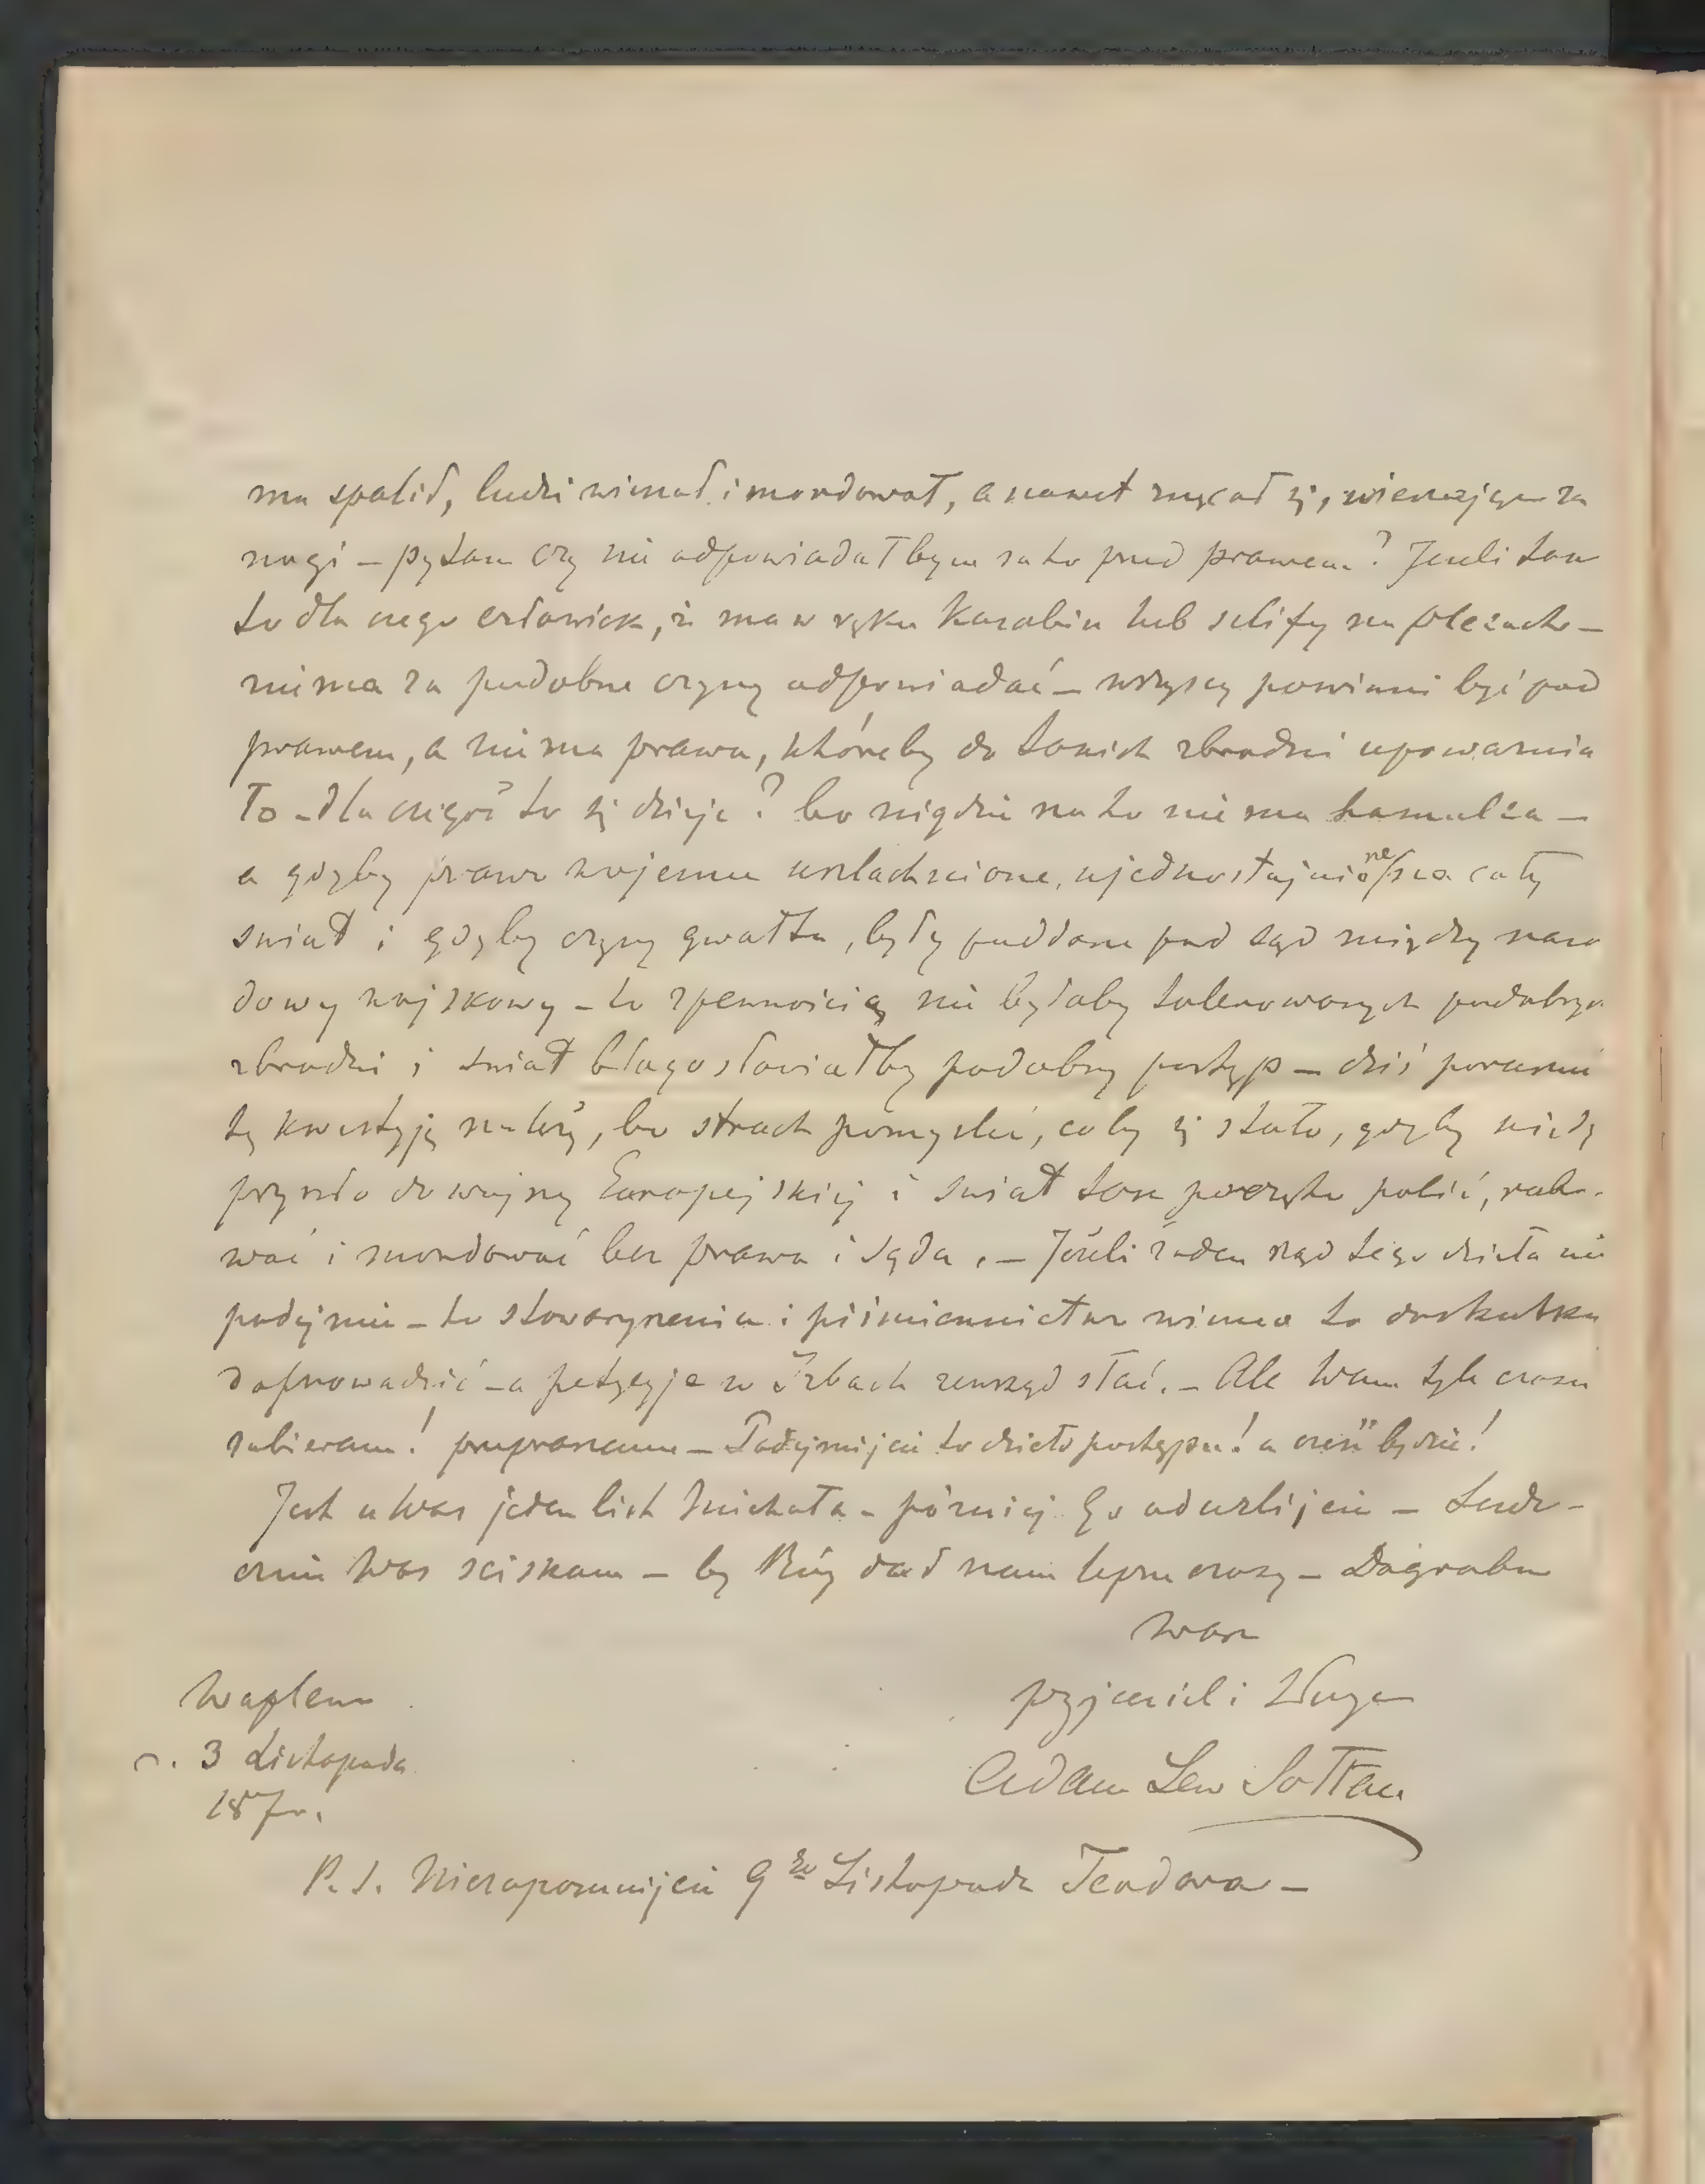 mu spalił, ludzi wieszał i mordował, a nawet znęcał się, wieszając za
nogi – pytam czy nie odpowiadałbym za to przed prawem? Jeżeli tak
to dla czego człowiek, iż ma w ręku karabin lub szlify na plecach –
nie ma za podobne czyny odpowiadać – wszyscy powinni być pod
prawem, a nie ma prawa, któreby do takich zbrodni upoważnia
To – dla czegoż to się dzieje? bo nigdzie na to nie ma hamulca –
a gdyby prawo wojenne uszlachcione, ujednostajnione na cały
świat i gdyby czyny gwałtu, były poddane pod sąd między naro
dowy wojskowy – to z pewnością nie byłoby tolerowanych podobnych
zbrodni i świat błagosławiałby podobny postęp – dziś poranni
tę kwestyję należy, bo strach pomyśleć, coby się stało, gdyby kiedy
przyszło do wojny Europejskiej i świat ten poczęto palić, rabo-
wać i mordować bez prawa i sądu. – Jeżeli żaden rząd tego dzieła nie
podejmie – to stowarzyszenia i piśmiennictwo winno to do skutku
doprowadzić – a petycyje w Izbach zewsząd słać. – Ale Wam tyle czasu
zabieram! przepraszam – Podejmijcie to dzieło postępu! a cześć będzie!
Jest u Was jeden list Michała – później Go odeszlijcie – Serde-
cznie Was ściskam – by Bóg dał nam lepsze czasy – Do grobu
Wasz
przyjaciel i Sługa
Adam Lew Sołtan
Waplewo
d. 3 Listopada
187 r.
P. S. Niezapomnijcie 9go Listopada Teodora –